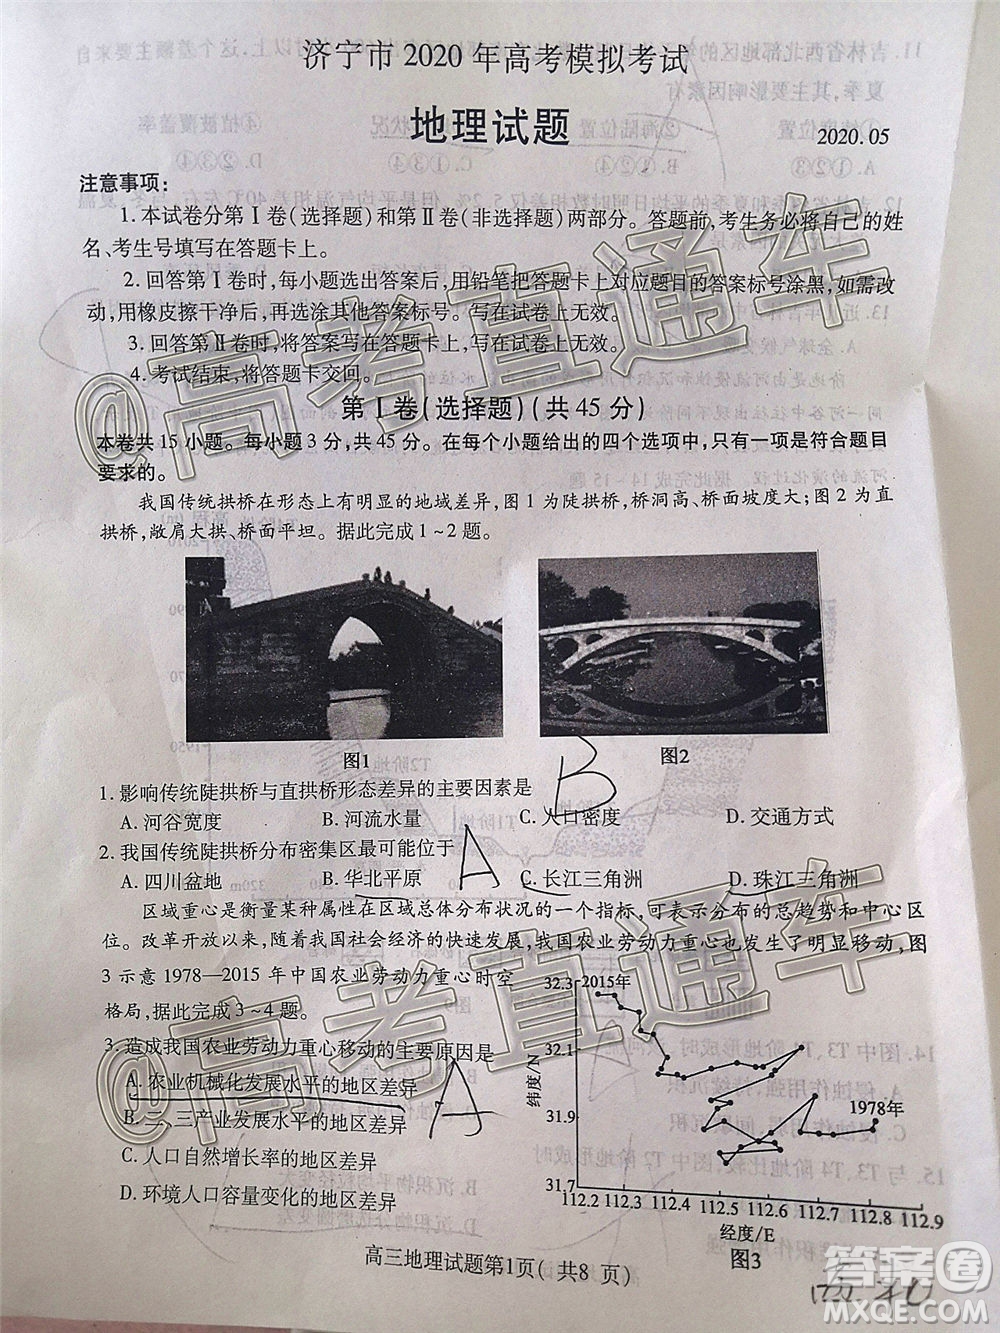 济宁市2020年高考模拟考试
地理试题
2020.05
注意事项：
1.本试卷分第Ⅰ卷(选择题)和第Ⅱ卷(非选择题)两部分。答题前,考生务必将自己的姓
名、考生号填写在答题卡上。
2.回答第Ⅰ卷时,每小题选出答案后,用铅笔把答题卡上对应题目的答案标号涂黑,如需改
动,用橡皮擦干净后,再选涂其他答案标号。写在试卷上无效。
3.回答第Ⅱ卷时,将答案写在答题卡上,写在试卷上无效。
4.考试结束,将答题卡交回。
第Ⅰ卷(选择题)(共45分)
本卷共15小题。每小题3分,共45分。在每个小题给出的四个选项中,只有一项是符合题目
要求的。
我国传统拱桥在形态上有明显的地域差异,图1为陡拱桥,桥洞高、桥面坡度大;图2为直
拱桥,敞肩大拱、桥面平坦。据此完成1~2题。
图1
图2
1.影响传统陡拱桥与直拱桥形态差异的主要因素是
B
A.河谷宽度 B.河流水量 C.人口密度 D.交通方式
2.我国传统陡拱桥分布密集区最可能位于
A
A.四川盆地 B.华北平原 C.长江三角洲 D.珠江三角洲
区域重心是衡量某种属性在区域总体分布状况的一个指标,可表示分布的总趋势和中心区
位。改革开放以来,随着我国社会经济的快速发展,我国农业劳动力重心也发生了明显移动,图
3示意1978—2015年中国农业劳动力重心时空
格局,据此完成3~4题。
3.造成我国农业劳动力重心移动的主要原因是
A
A.农业机械化发展水平的地区差异
B.二、三产业发展水平的地区差异
C.人口自然增长率的地区差异
D.环境人口容量变化的地区差异
32.3
32.1
31.9
31.7
纬度/N
2015年
1978年
112.2 112.3 112.4 112.5 112.6 112.7 112.8 112.9
经度/E
图3
高三地理试题第1页( 共8 页)
@高考直通车
@高考直通车
答案圈
MXQE.COM